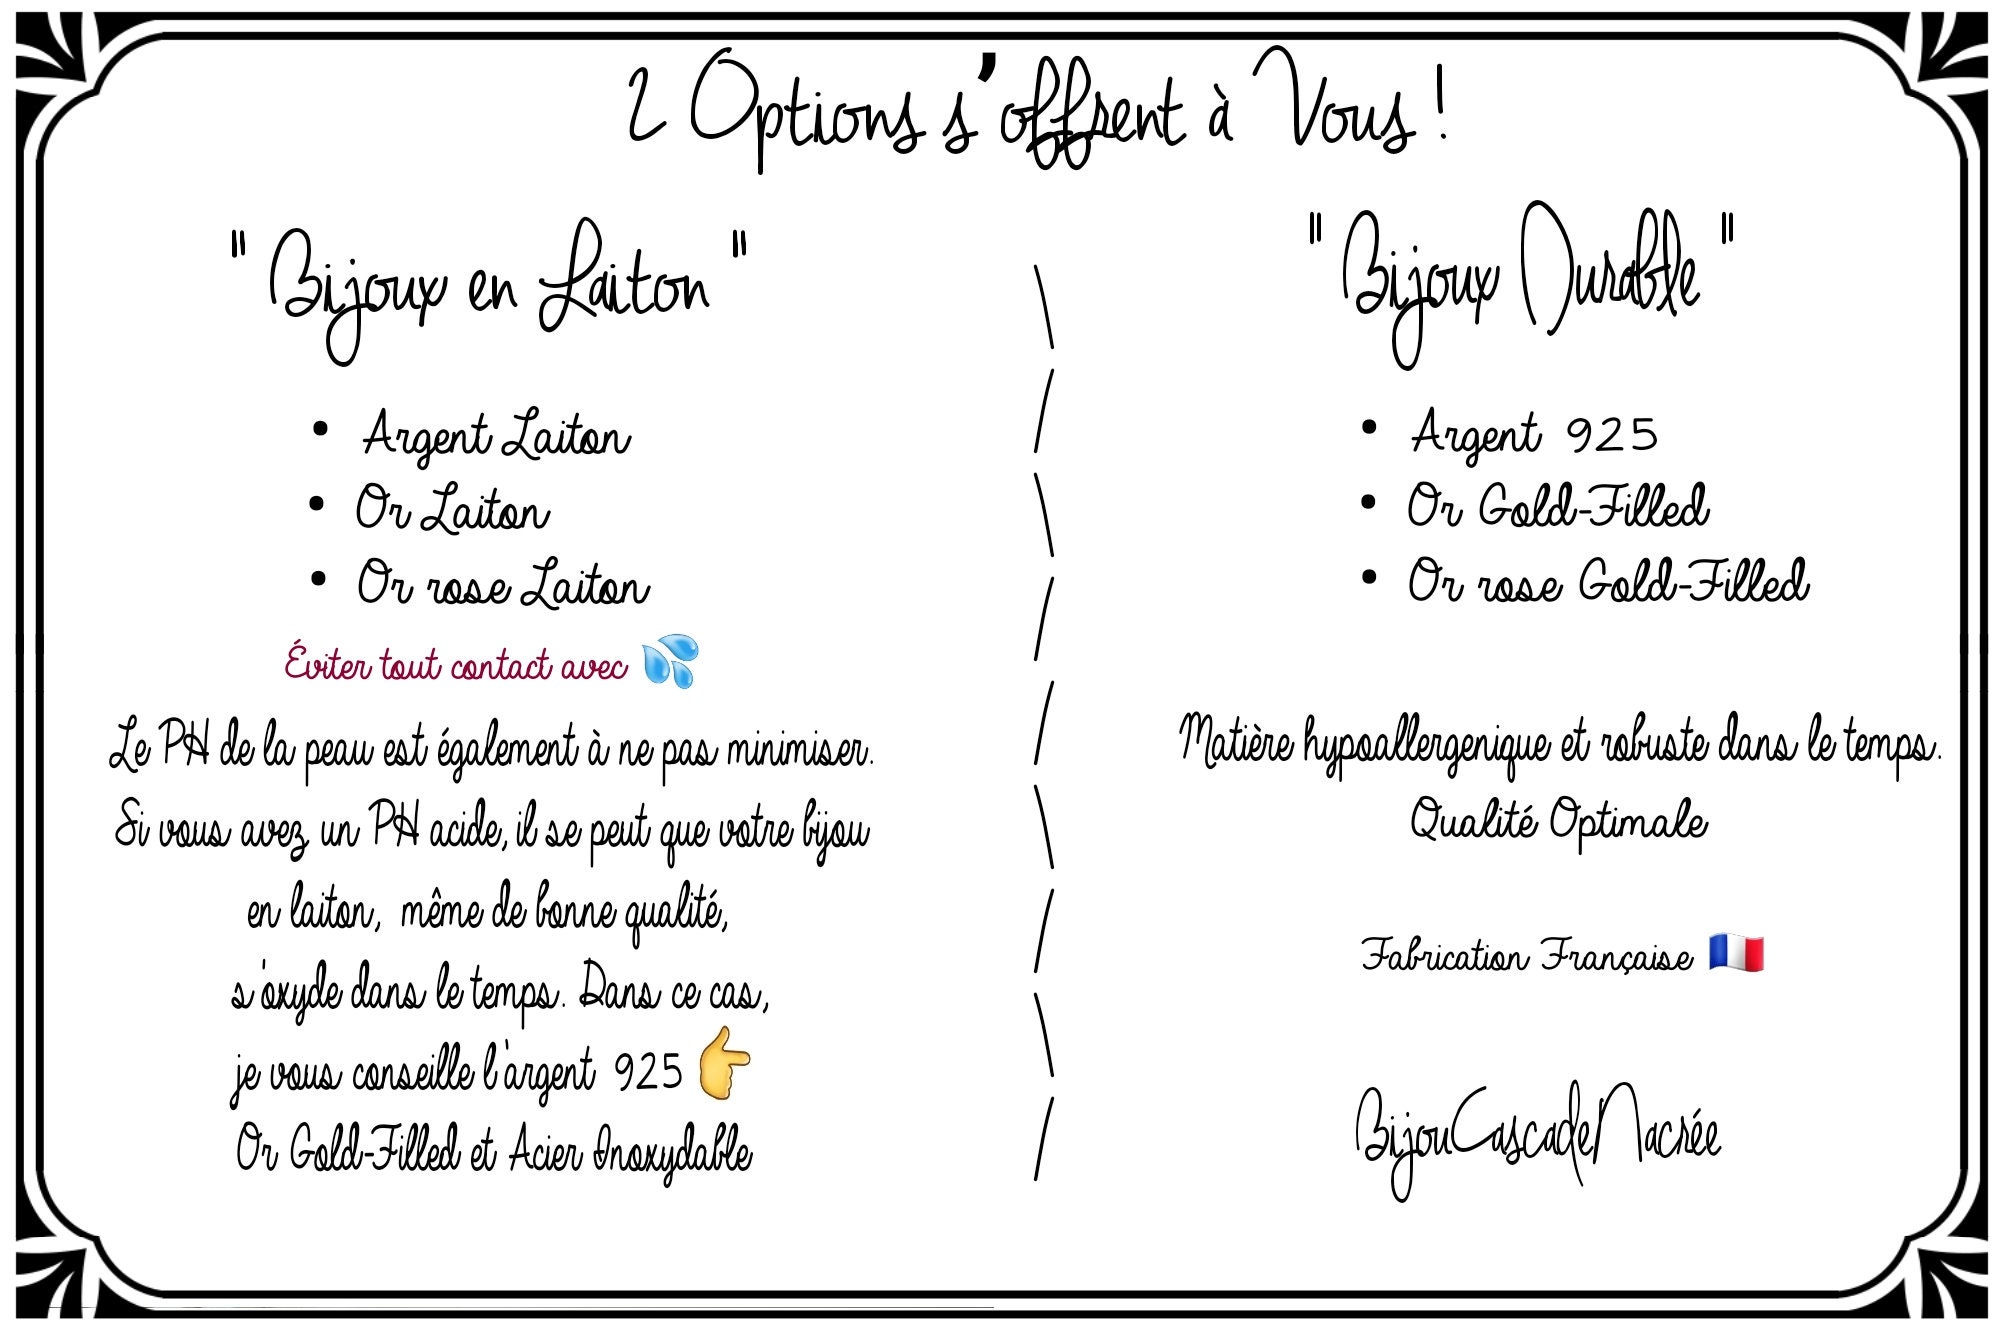 2 Options s'offrent à Vous !
" Bijoux en Laiton "
• Argent Laiton
• Or Laiton
• Or rose Laiton
Éviter tout contact avec 💦
Le PH de la peau est également à ne pas minimiser.
Si vous avez un PH acide, il se peut que votre bijou
en laiton, même de bonne qualité,
s'oxyde dans le temps. Dans ce cas,
je vous conseille l'argent 925 👉
Or Gold-Filled et Acier Inoxydable
" Bijoux Durable "
• Argent 925
• Or Gold-Filled
• Or rose Gold-Filled
Matière hypoallergenique et robuste dans le temps.
Qualité Optimale
Fabrication Française 🇫🇷
BijouCascadeNacrée